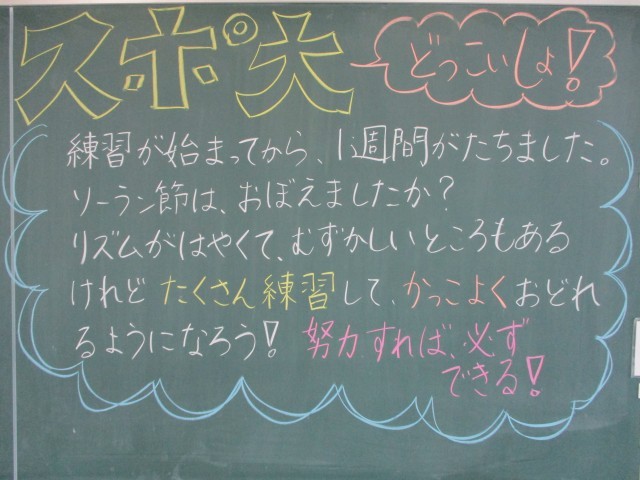 スポ大
どっこいしょ!
練習が始まってから、1週間がたちました。
ソーラン節は、おぼえましたか?
リズムがはやくて、むずかしいところもある
けれど たくさん練習して、かっこよくおどれ
るようになろう! 努力すれば、必ず
できる!